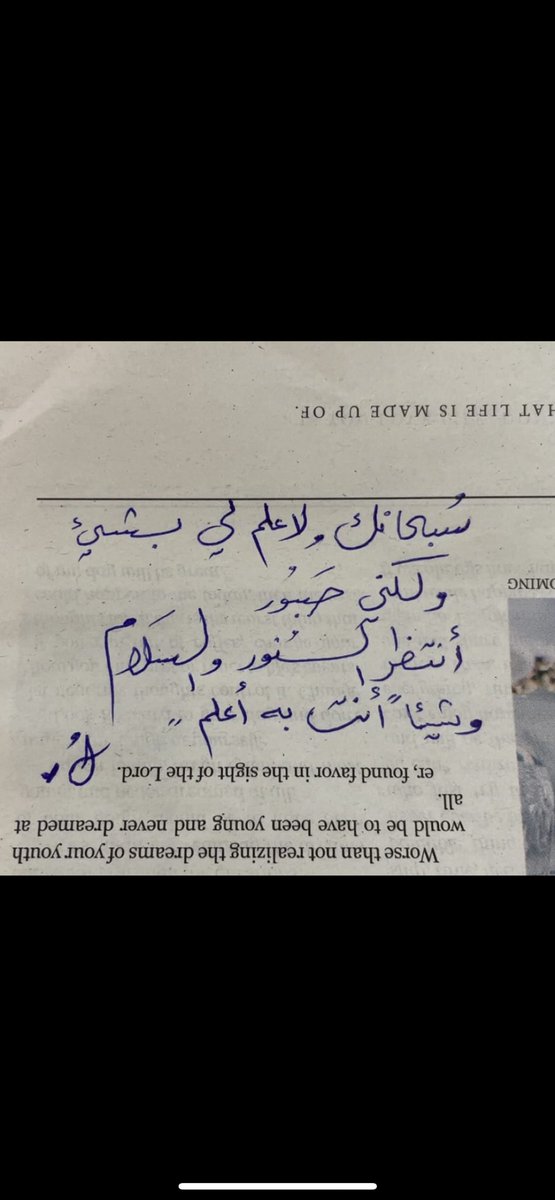 HAT LIFE IS MADE UP OF.
سُبحانك ولا علم لي بشيئ
OMING
ولكني صَبُور
أنتظر النُور والسَلام
وشيئاً أنت به أعلم ..
er, found favor in the sight of the Lord.
Worse than not realizing the dreams of your youth
would be to have been young and never dreamed at
all.